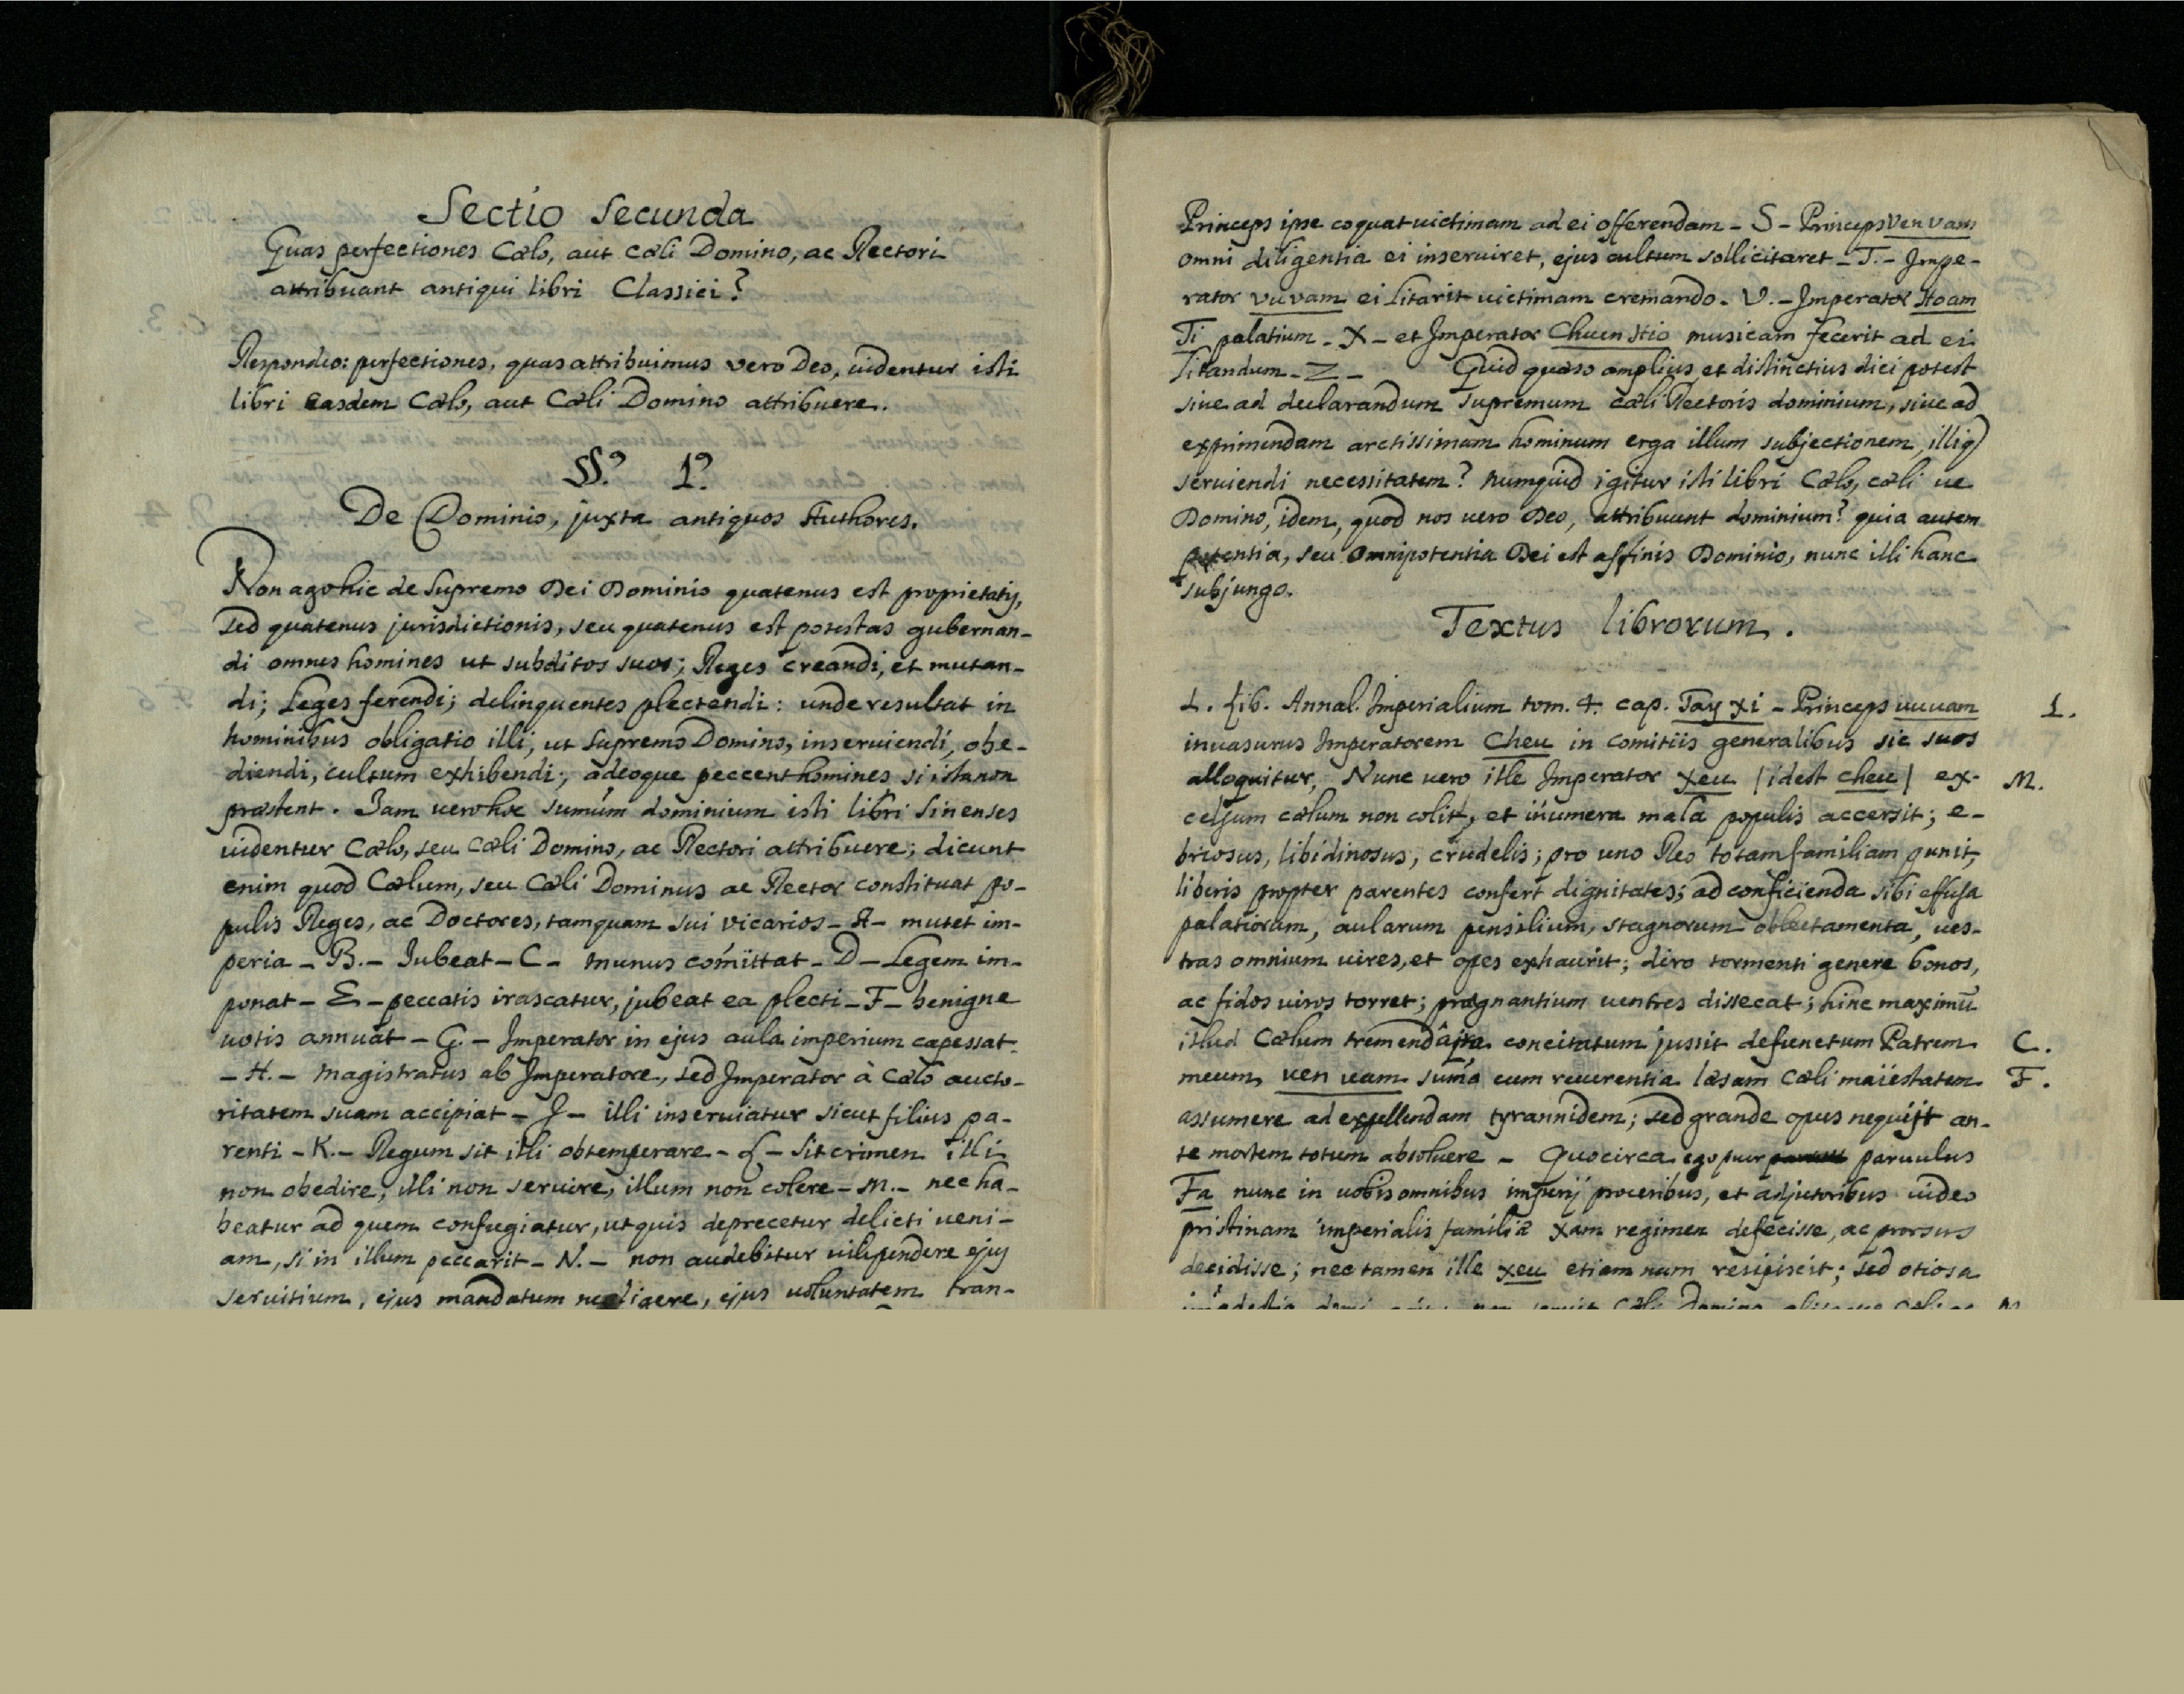 Sectio Secunda
Quas perfectiones Cælo, aut cæli Domino, ac Rectori
attribuant antiqui libri Classici?
Respondeo: perfectiones, quas attribuimus vero Deo, uidentur isti
libri easdem Cælo, aut Cæli Domino attribuere.
§§.º 1.º
De Dominio, juxta antiquos Authores.
Non ago hic de Supremo Dei Dominio quatenus est proprietatis,
sed quatenus jurisdictionis, seu quatenus est potestas gubernan-
di omnes homines ut subditos suos; Reges creandi, et mutan-
di; Leges ferendi; delinquentes plectendi: unde resultat in
hominibus obligatio illi, ut Supremo Domino, inseruiendi, obe-
diendi, cultum exhibendi; adeoque peccent homines si ista non
præstent. Jam uero hoc sumum dominium isti libri Sinenses
uidentur Cælo, seu Cæli Domino, ac Rectori attribuere; dicunt
enim quod Cælum, seu Cæli Dominus ac Rector constituat po-
pulis Reges, ac Doctores, tamquam sui vicarios - A - mutet im-
peria - B. - Jubeat - C - munus comittat - D - Legem im-
ponat - E - peccatis irascatur, jubeat ea plecti - F - benigne
uotis annuat - G. - Imperator in ejus aula imperium capessat
- H. - Magistratus ab Imperatore, sed Imperator à Cælo aucto-
ritatem suam accipiat - J - illi inseruiatur sicut filius pa-
renti - K. - Regum sit illi obtemperare - L - Sit crimen illi
non obedire, illi non seruire, illum non colere - M. - nec ha-
beatur ad quem confugiatur, ut quis deprecetur delicti ueni-
am, si in illum peccarit - N. - non audebitur uilipendere ejus
seruitium, ejus mandatum negligere, ejus uoluntatem tran-
Princeps ipse coquat uictimam ad ei offerendam - S - Princeps Ven vam
omni diligentia ei inseruiret, ejus cultum sollicitaret - T. - Impe-
rator vu vam ei litarit uictimam cremando - V. - Imperator Hoam
Ti palatium - X - et Imperator Chuen Hio musicam fecerit ad ei
litandum - Z - Quid quæso amplius et distinctius dici potest
siue ad declarandum Supremum cæli Rectoris dominium, siue ad
exprimendam arctissimam hominum erga illum subjectionem, illiq)
seruiendi necessitatem? Numquid igitur isti libri Cælo, cæli ue
Domino, idem, quod nos uero Deo, attribuunt dominium? quia autem
potentia, seu Omnipotentia Dei est affinis Dominio, nunc illi hanc
subjungo.
Textus librorum.
1. Lib. Annal. Imperialium tom. 4. cap. Tay xi - Princeps uu uam 1.
inuasurus Imperatorem Cheu in comitiis generalibus sic suos
alloquitur, Nunc uero iste Imperator xeu | idest cheu | ex- M.
celsum cælum non colit, et inumera mala populis accersit; e-
briosus, libidinosus, crudelis; pro uno Reo totam familiam punit,
liberis propter parentes confert dignitates; ad conficienda sibi effusa
palatiorum, aularum pensilium, stagnorum oblectamenta, ues-
tras omnium uires, et opes exhaurit; diro tormenti genere bonos,
ac fidos uiros torret; prægnantium uentres dissecat; hinc maximu
illud Cælum concitatum jussit defunctum Patrem C.
meum, uen uam suma cum reuerentia læsam Cæli maiestatem F.
assumere ad expellendam tyrannidem; sed grande opus nequijt an-
te mortem totum absoluere - Quocirca ego puer paruulus
Fa nunc in uobis omnibus imperij proceribus, et adjutoribus uideo
pristinam imperialis familiæ xam regimen defecisse, ac prorsus
decidisse; nec tamen ille xeu etiam num resipiscit; sed otiosa